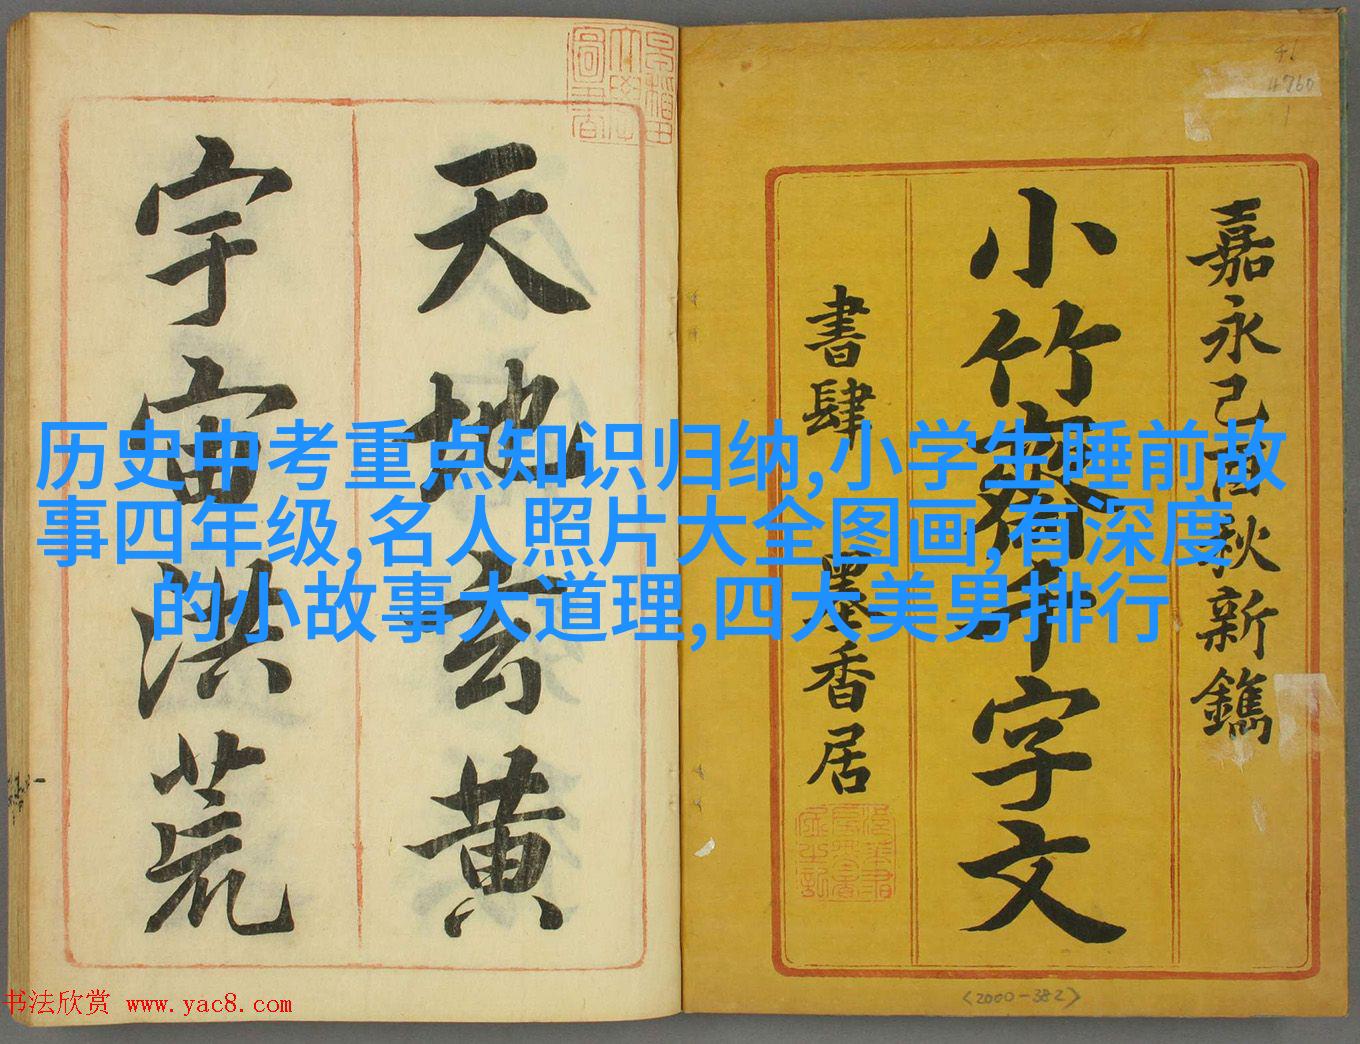 嘉永己酉秋新鐫
小竹齋千字文
書肆 墨香居
天地玄黄
宇宙洪荒
历史中考重点知识归纳,小学生睡前故
事四年级,名人照片大全图画,有深度
的小故事大道理,四大美男排行
书法欣赏 www.yac8.com
46
4760
<2000-382>